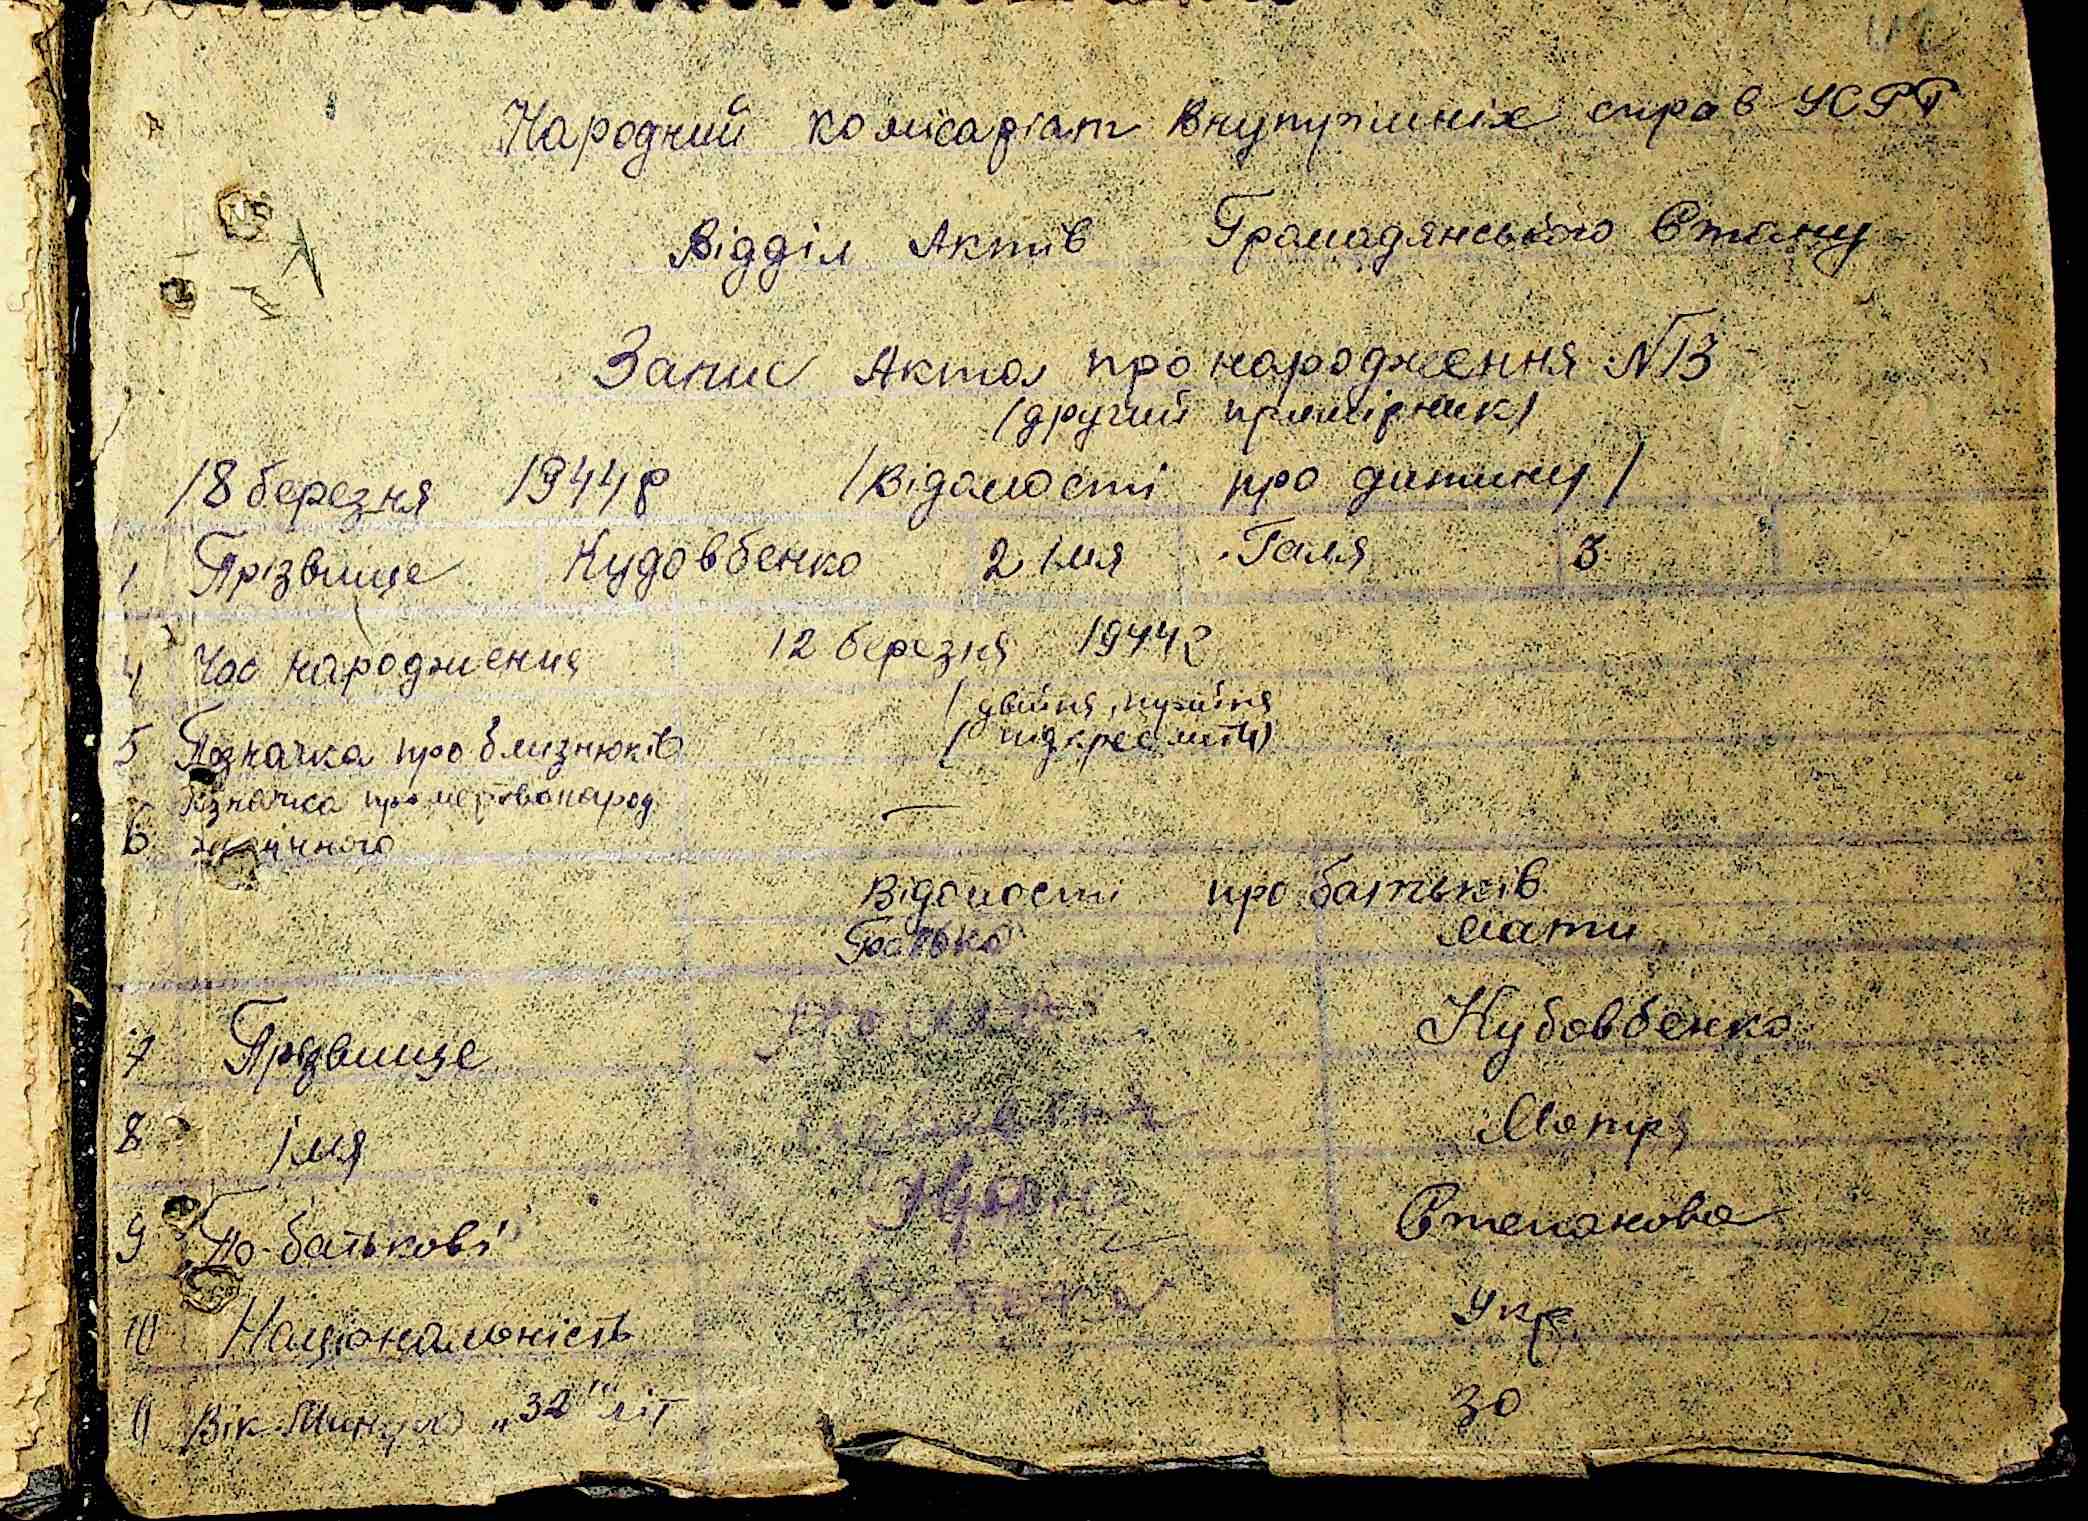 Народний комісаріат Внутрішніх справ УСРР
Відділ Актів Громадянського Стану
Запис Акта про народження N 13
(другий примірник)
18 березня 1944 р (Відомості про дитину)
1 Прізвище Кудовбенко 2 імя Галя 3
4 Час народження 12 березня 1944 г
5 Позначка про близнюків (двійня, трійня підкреслити)
6 Позначка про мертвонарод
Відомості про батьків
Батько мати
7 Прізвище Кубовбенко
8 імя Мотря
9 По-батькові Степанова
10 Національність Укр
11 Вік Минуло "32" літ 30